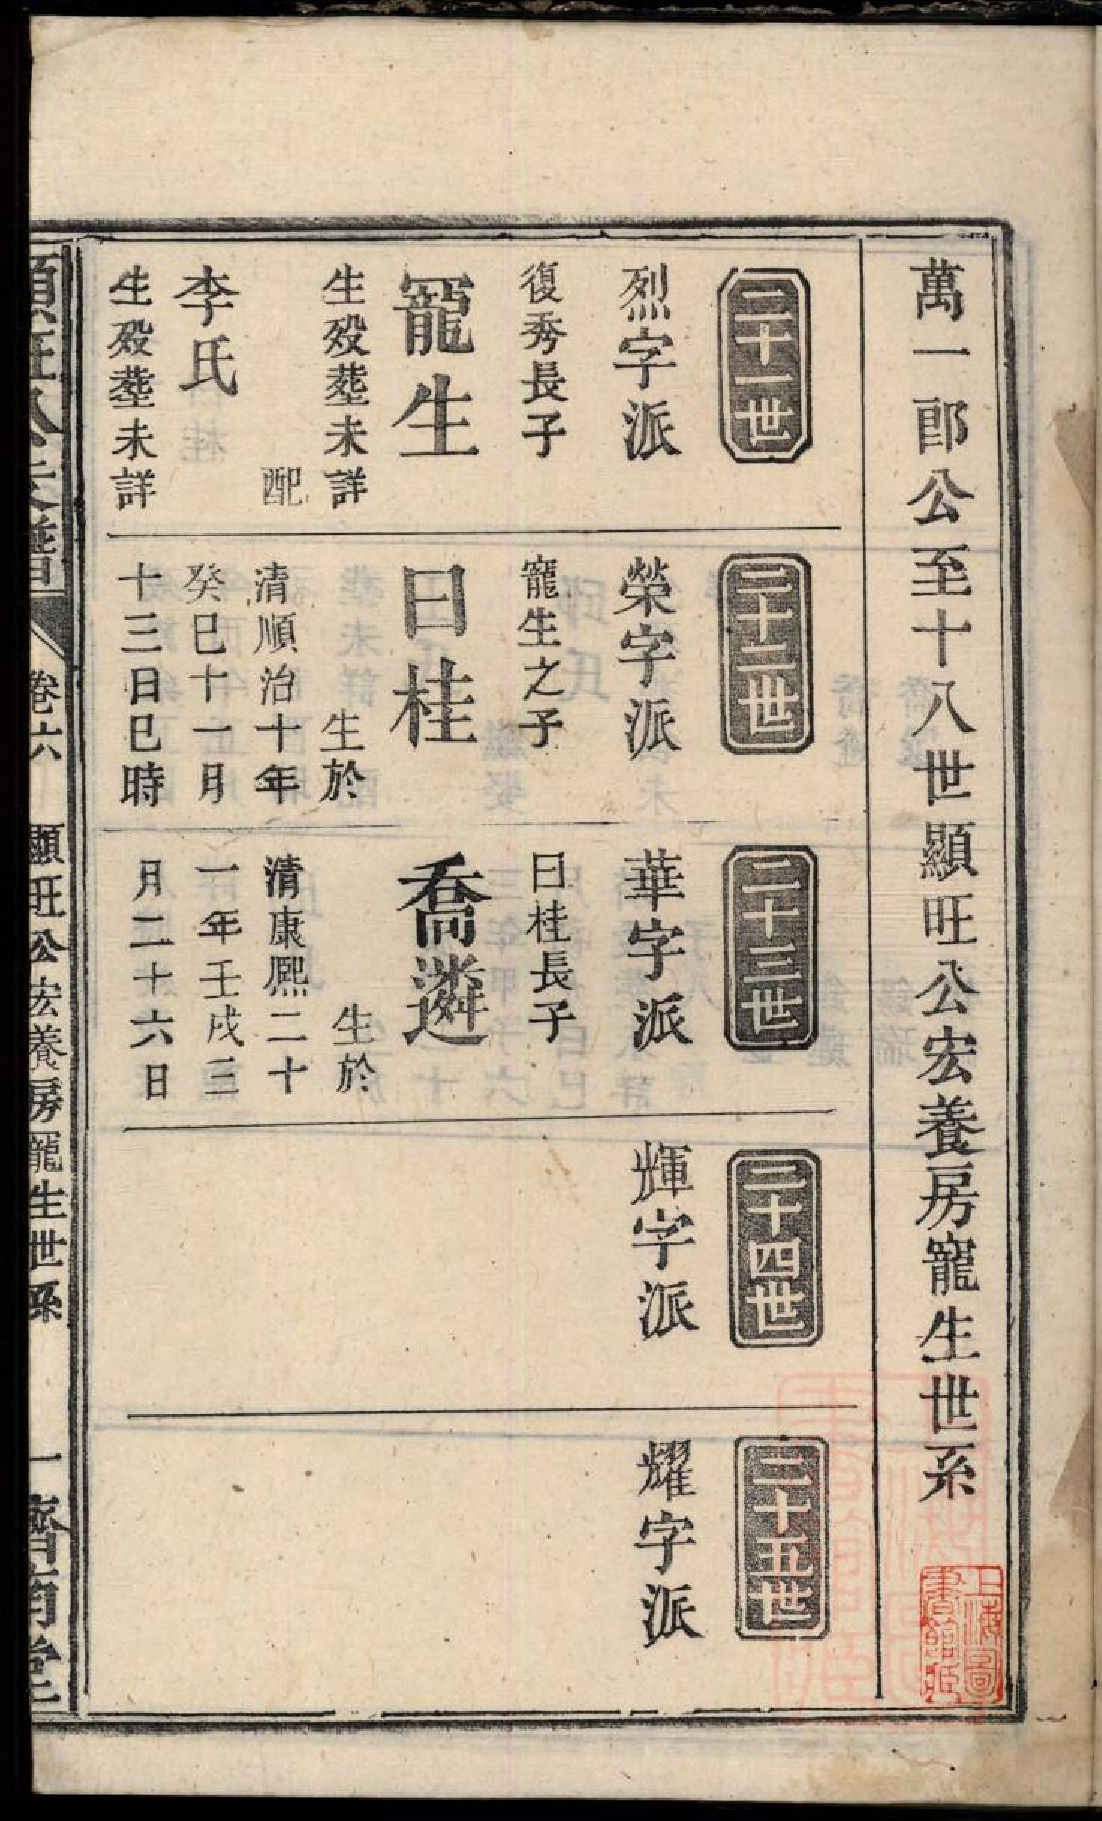 萬一郎公至十八世顯旺公宏養房寵生世系
二十一世
烈字派
復秀長子
寵生
生殁塟未詳
配
李氏
生殁塟未詳
二十二世
榮字派
寵生之子
曰桂
生於
清順治十年
癸巳十一月
十三日巳時
二十三世
華字派
曰桂長子
喬遴
生於
清康熈二十
一年壬戌三
月二十六日
二十四世
輝字派
二十五世
耀字派
卷六
顯旺公宏養房寵生世系
一
上海圖
書館藏